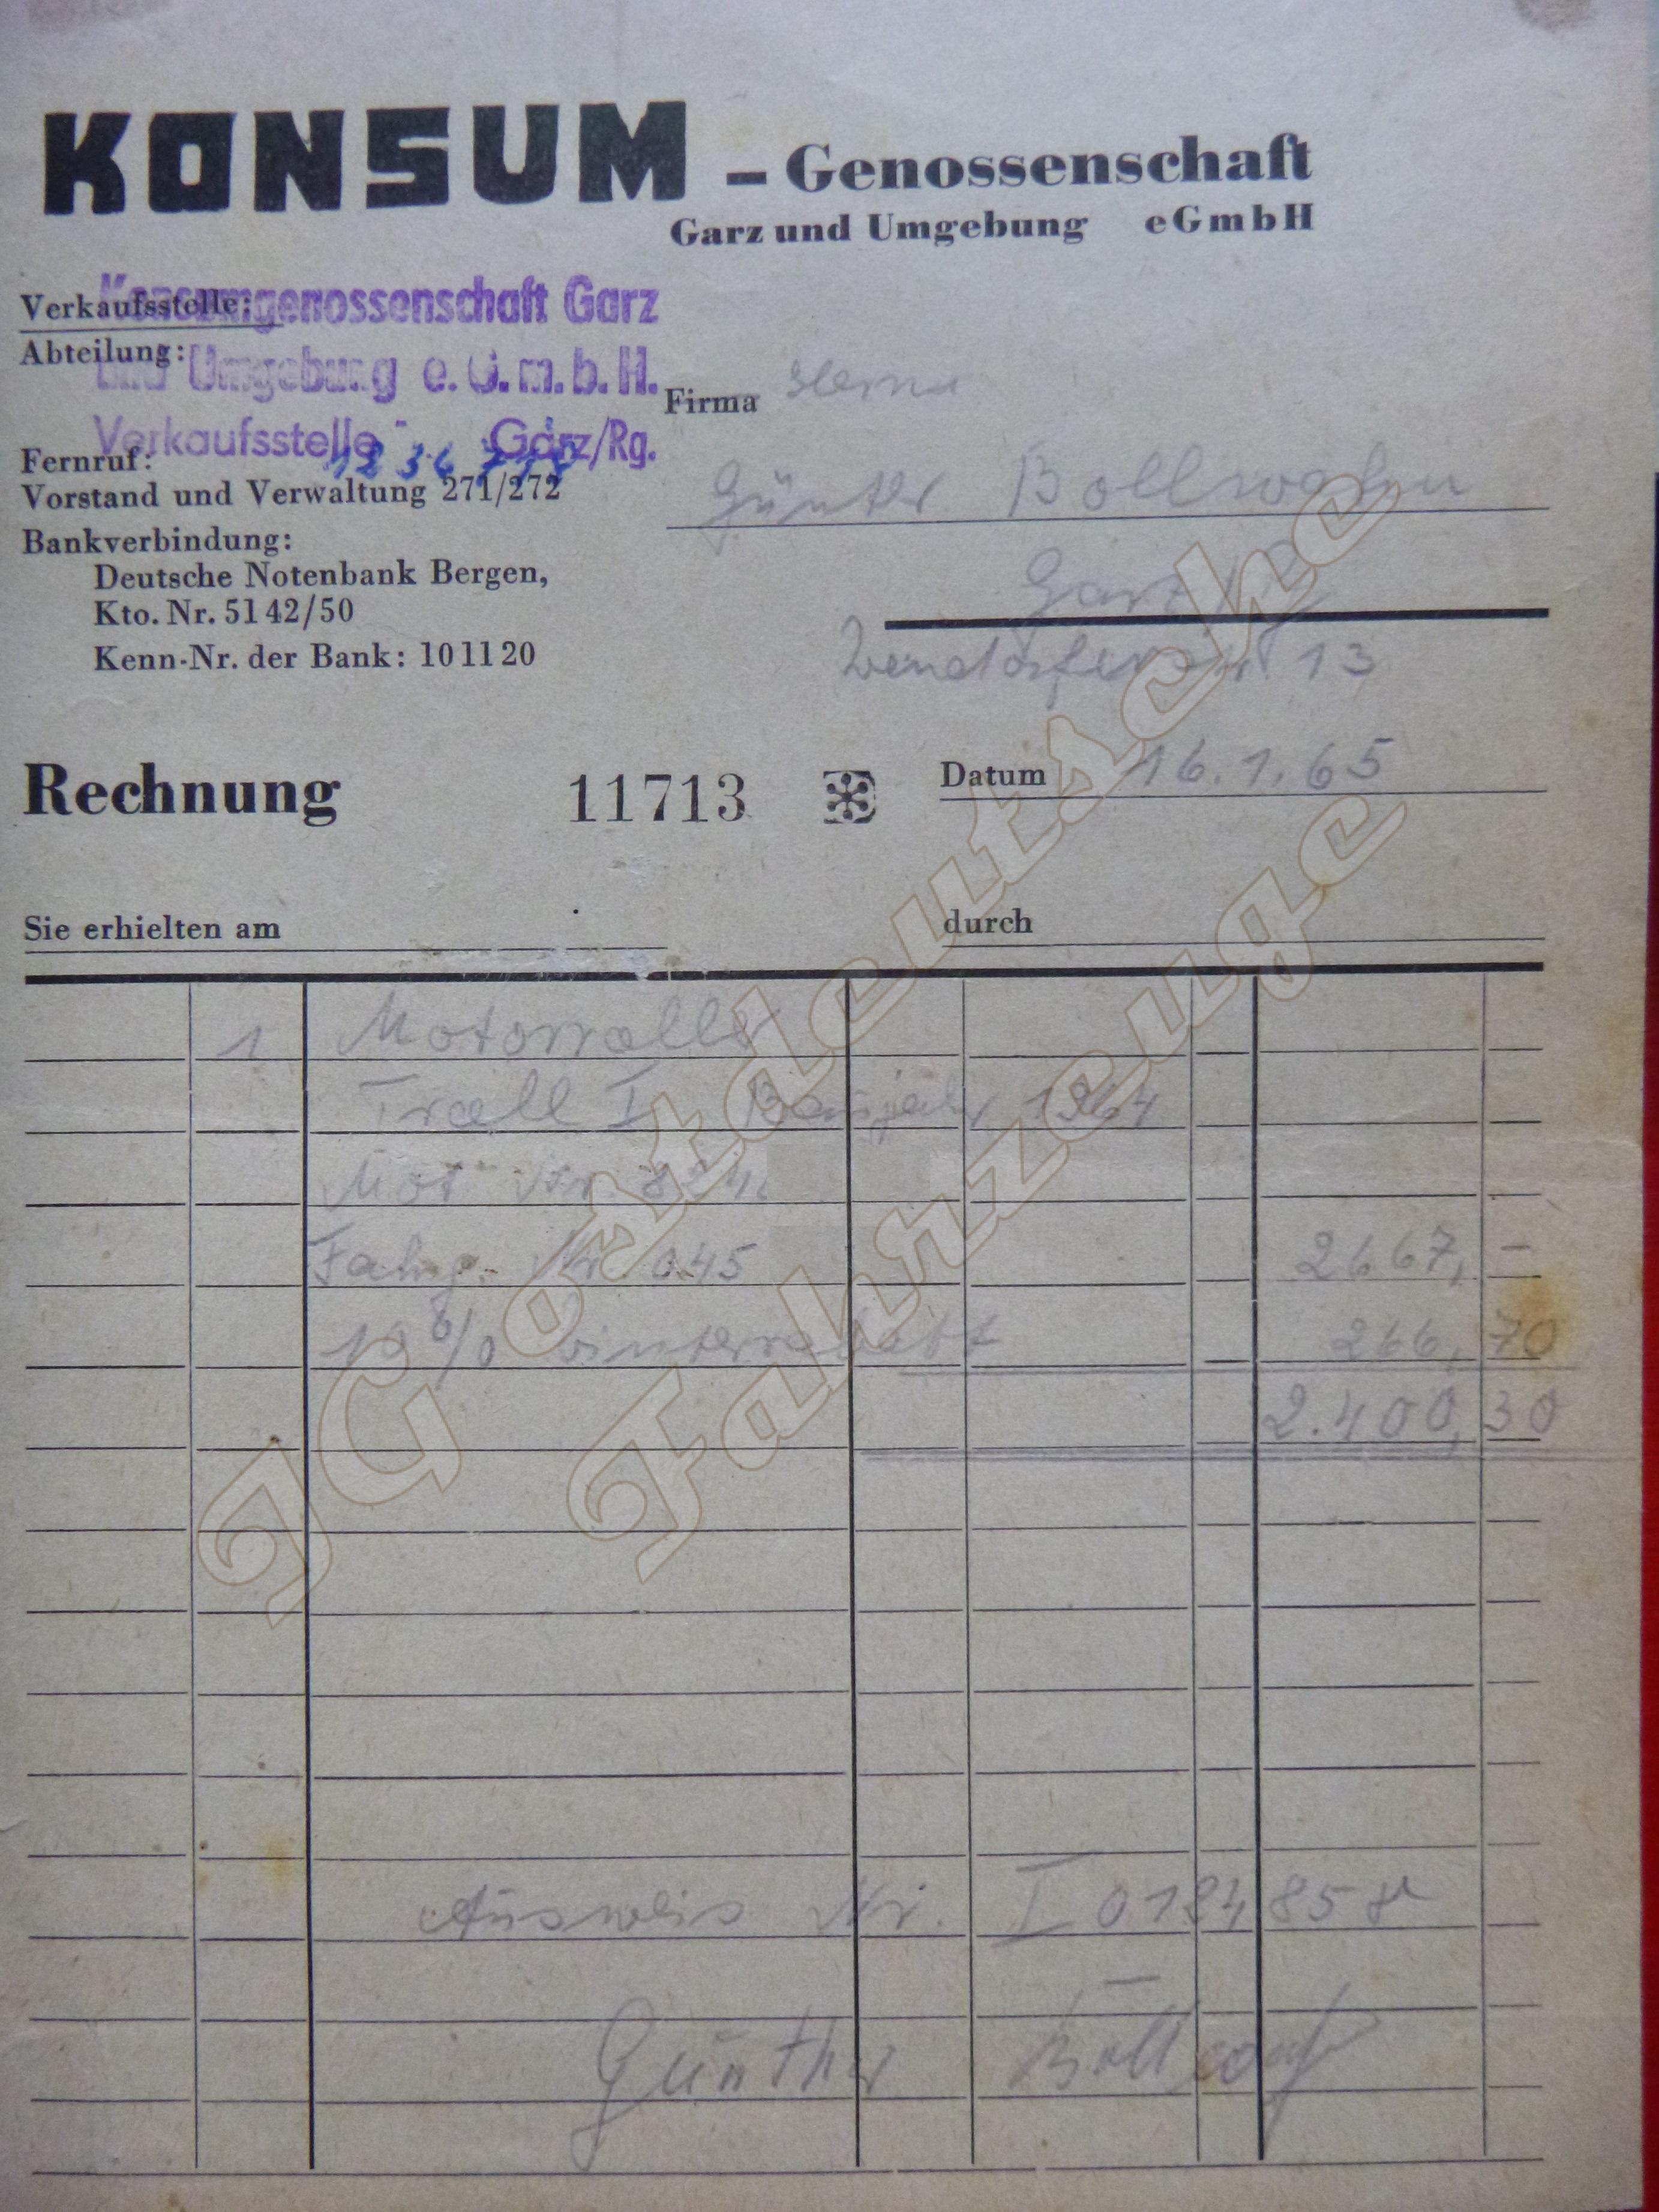 KONSUM - Genossenschaft
Garz und Umgebung eGmbH
Konsumgenossenschaft Garz
und Umgebung e.G.m.b.H.
Verkaufsstelle Garz/Rg.
Verkaufsstelle:
Abteilung:
Fernruf:
Vorstand und Verwaltung 271/272
Bankverbindung:
Deutsche Notenbank Bergen,
Kto. Nr. 51 42/50
Kenn-Nr. der Bank: 10 11 20
Firma Herrn
Günter
Garz/Rg
13
Rechnung 11713 Datum 16.1.65
Sie erhielten am durch
1 Motorroller
Troll I Baujahr 1964
Mot Nr. 824
Fahrg. Nr. 045 2667,-
10% Winterrabatt 266,70
2.400,30
Ausweis Nr. I 0184858
Günther
IG ostdeutsche
Fahrzeuge